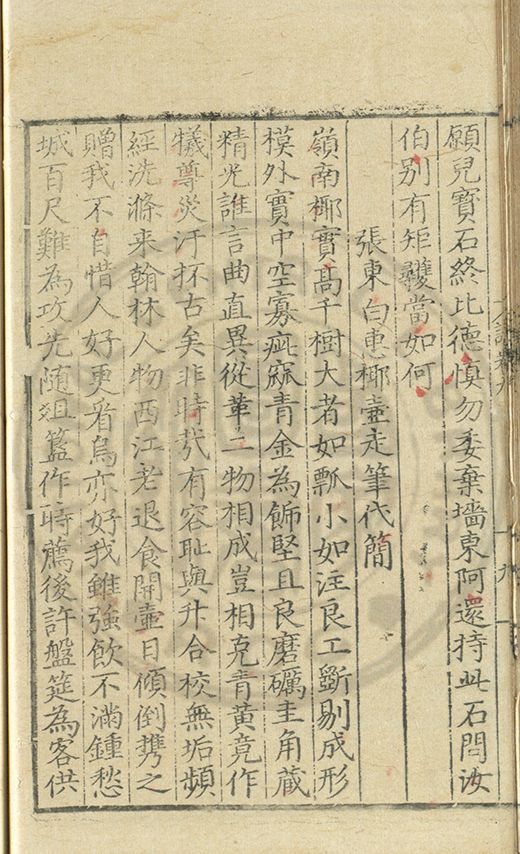 願兒寳石終比德慎勿委棄墻東阿還持此石問汝
伯别有矩矱當如何
張東白惠椰壷走筆代簡
嶺南椰實高千樹大者如瓢小如注良工斵剔成形
模外實中空寡疵窳青金為飾堅且良磨礪圭角蔵
精光誰言曲直異從革二物相成豈相克青黄竟作
犧尊災汙抔古矣非時㢤有容耻與升合校無垢頻
經洗滌来翰林人物西江老退食開壷日傾倒携之
贈我不自惜人好更看烏亦好我雖強飲不滿鍾愁
城百尺難為攻先随俎簋作時薦後許盤筵為客供